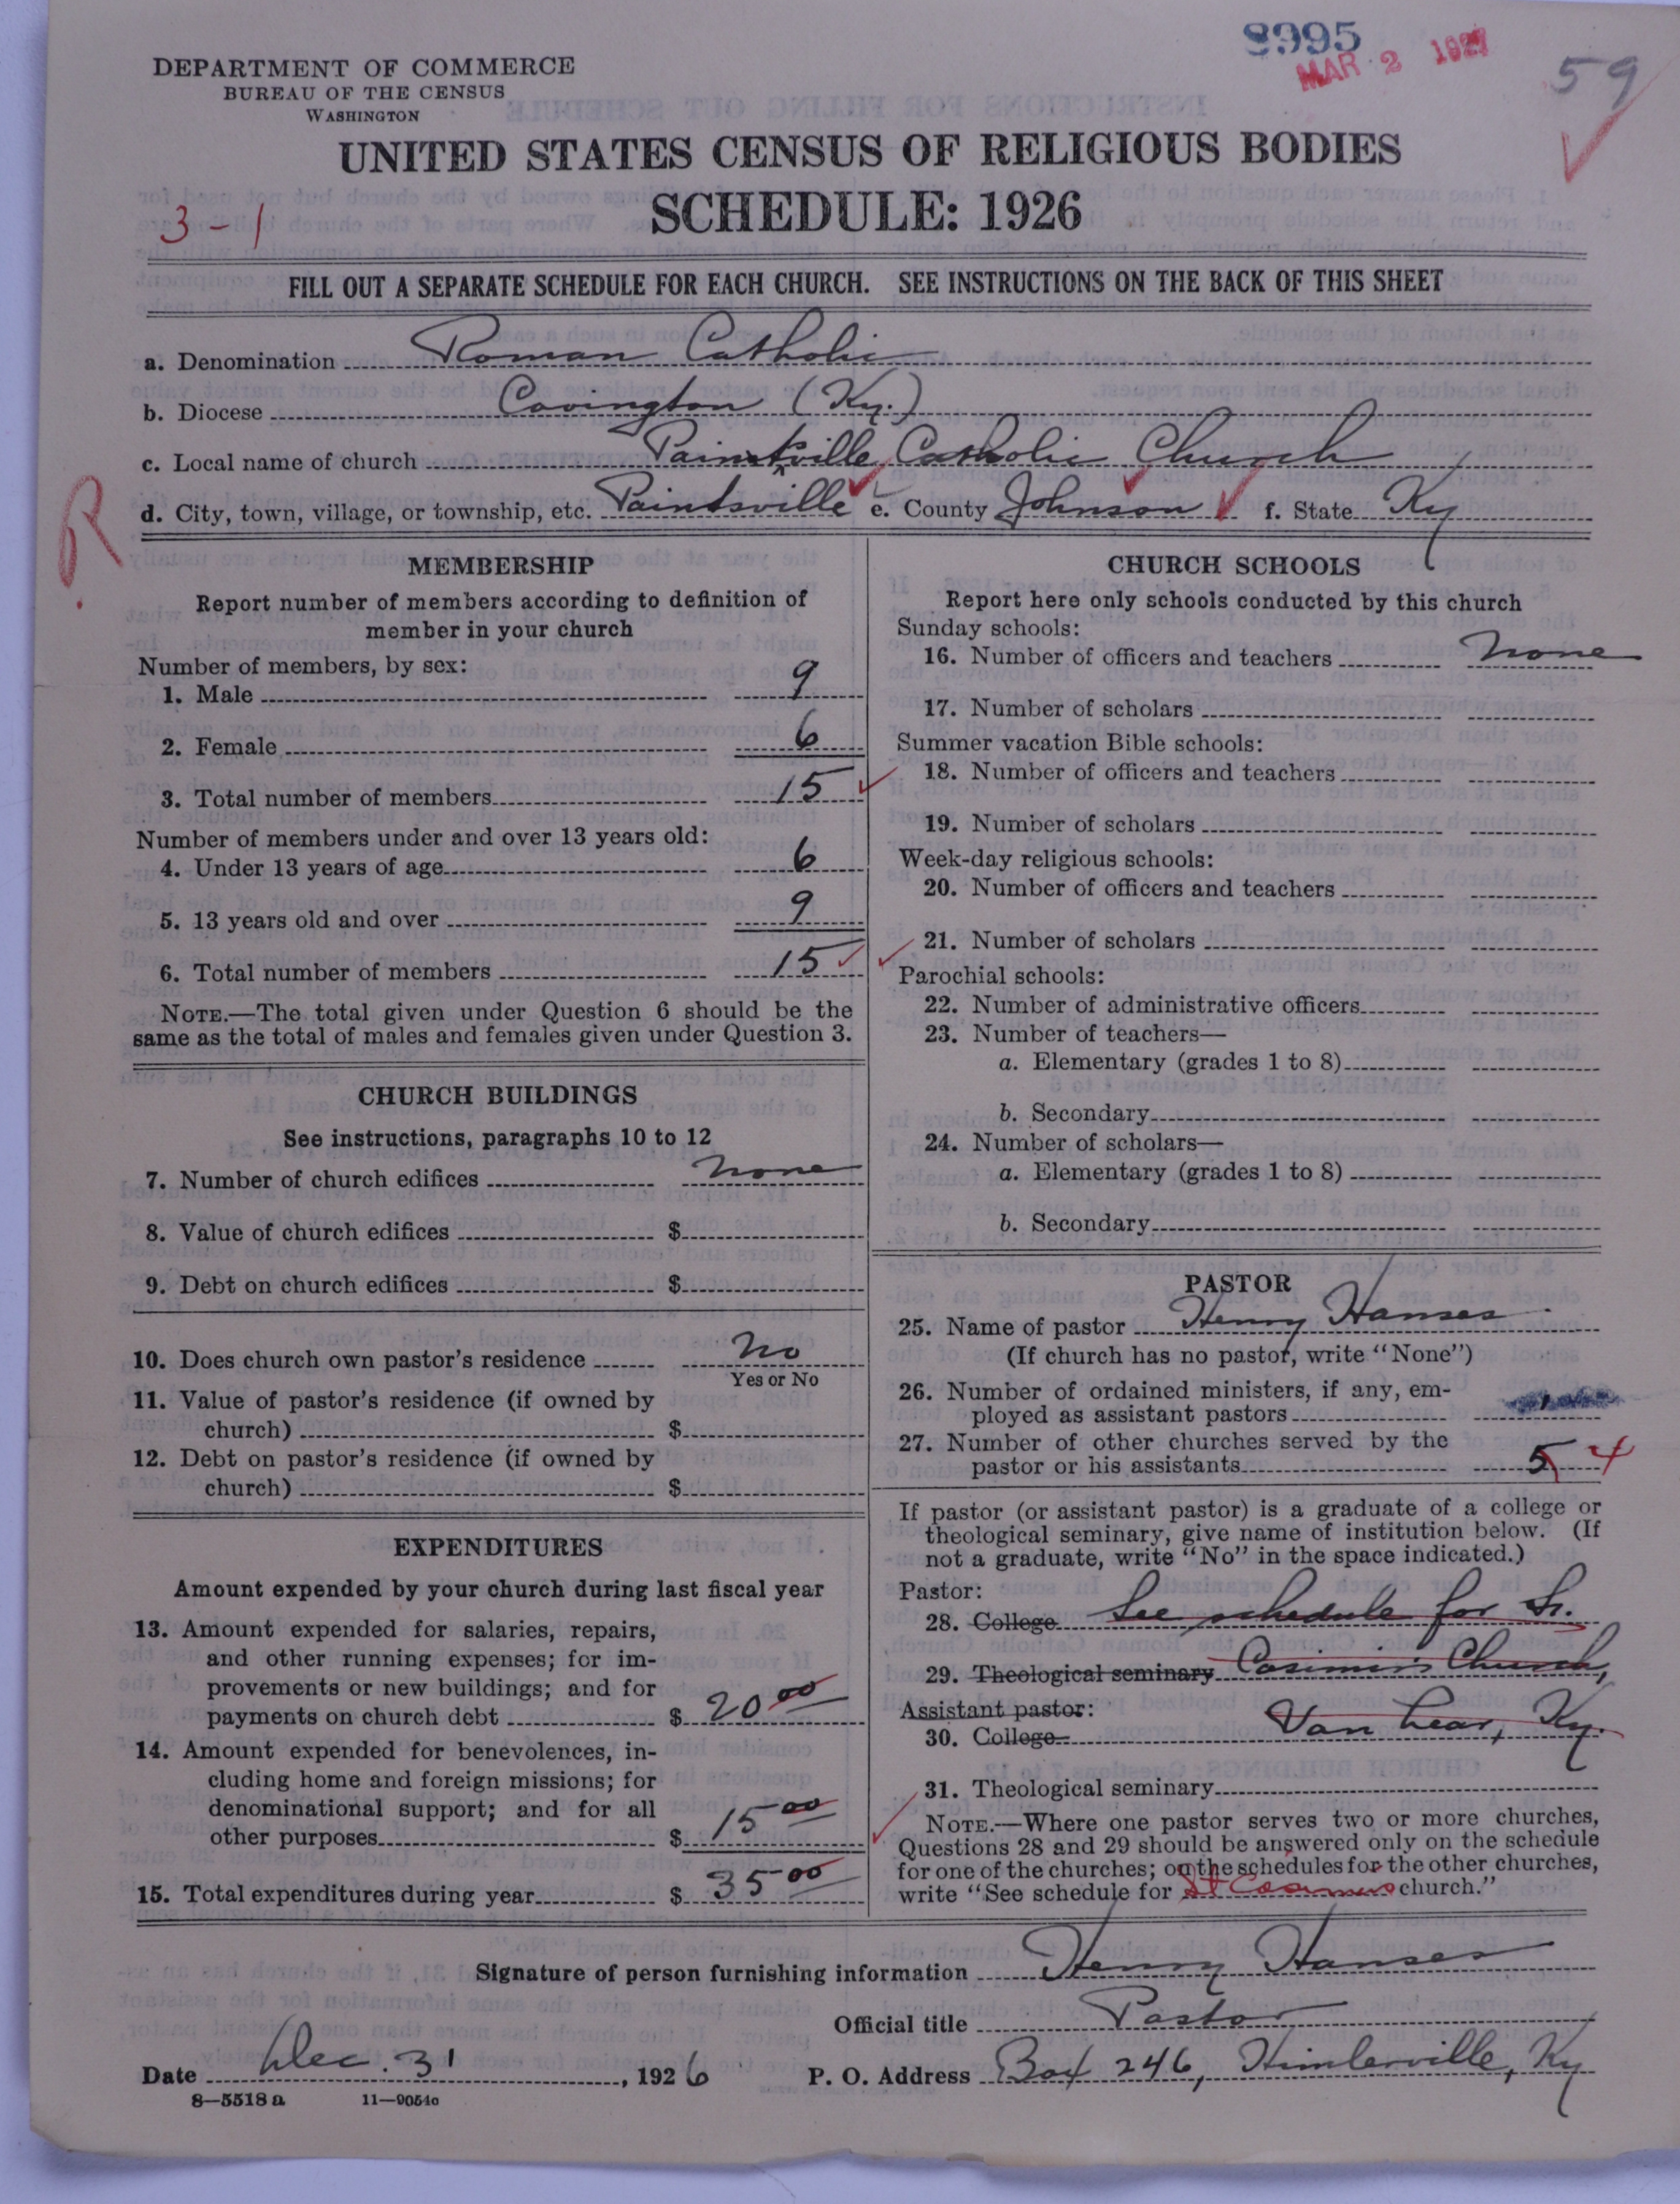 8995
MAR 2 1927
59
DEPARTMENT OF COMMERCE
BUREAU OF THE CENSUS
WASHINGTON
UNITED STATES CENSUS OF RELIGIOUS BODIES
SCHEDULE: 1926
3-1
FILL OUT A SEPARATE SCHEDULE FOR EACH CHURCH. SEE INSTRUCTIONS ON THE BACK OF THIS SHEET
a. Denomination Roman Catholic
b. Diocese Covington (Ky.)
c. Local name of church Paintsville Catholic Church
d. City, town, village, or township, etc. Paintsville e. County Johnson f. State Ky
R
MEMBERSHIP
Report number of members according to definition of
member in your church
Number of members, by sex:
1. Male 9
2. Female 6
3. Total number of members 15
Number of members under and over 13 years old:
4. Under 13 years of age 6
5. 13 years old and over 9
6. Total number of members 15
NOTE.—The total given under Question 6 should be the
same as the total of males and females given under Question 3.
CHURCH BUILDINGS
See instructions, paragraphs 10 to 12
7. Number of church edifices None
8. Value of church edifices $
9. Debt on church edifices $
10. Does church own pastor's residence No
Yes or No
11. Value of pastor's residence (if owned by
church) $
12. Debt on pastor's residence (if owned by
church) $
EXPENDITURES
Amount expended by your church during last fiscal year
13. Amount expended for salaries, repairs,
and other running expenses; for im-
provements or new buildings; and for
payments on church debt $ 20 00
14. Amount expended for benevolences, in-
cluding home and foreign missions; for
denominational support; and for all
other purposes $ 15 00
15. Total expenditures during year $ 35 00
CHURCH SCHOOLS
Report here only schools conducted by this church
Sunday schools:
16. Number of officers and teachers None
17. Number of scholars
Summer vacation Bible schools:
18. Number of officers and teachers
19. Number of scholars
Week-day religious schools:
20. Number of officers and teachers
21. Number of scholars
Parochial schools:
22. Number of administrative officers
23. Number of teachers—
a. Elementary (grades 1 to 8)
b. Secondary
24. Number of scholars—
a. Elementary (grades 1 to 8)
b. Secondary
PASTOR
25. Name of pastor Henry Hanses
(If church has no pastor, write "None")
26. Number of ordained ministers, if any, em-
ployed as assistant pastors
27. Number of other churches served by the
pastor or his assistants 5 4
If pastor (or assistant pastor) is a graduate of a college or
theological seminary, give name of institution below. (If
not a graduate, write "No" in the space indicated.)
Pastor:
28. College See schedule for St.
29. Theological seminary Casimir's Church,
Assistant pastor:
30. College Van Lear, Ky.
31. Theological seminary
NOTE.—Where one pastor serves two or more churches,
Questions 28 and 29 should be answered only on the schedule
for one of the churches; on the schedules for the other churches,
write "See schedule for St Casimirs church."
Signature of person furnishing information Henry Hanses
Official title Pastor
Date Dec. 31, 1926 P. O. Address Box 246, Himlerville, Ky
8—5518 a 11—9054c